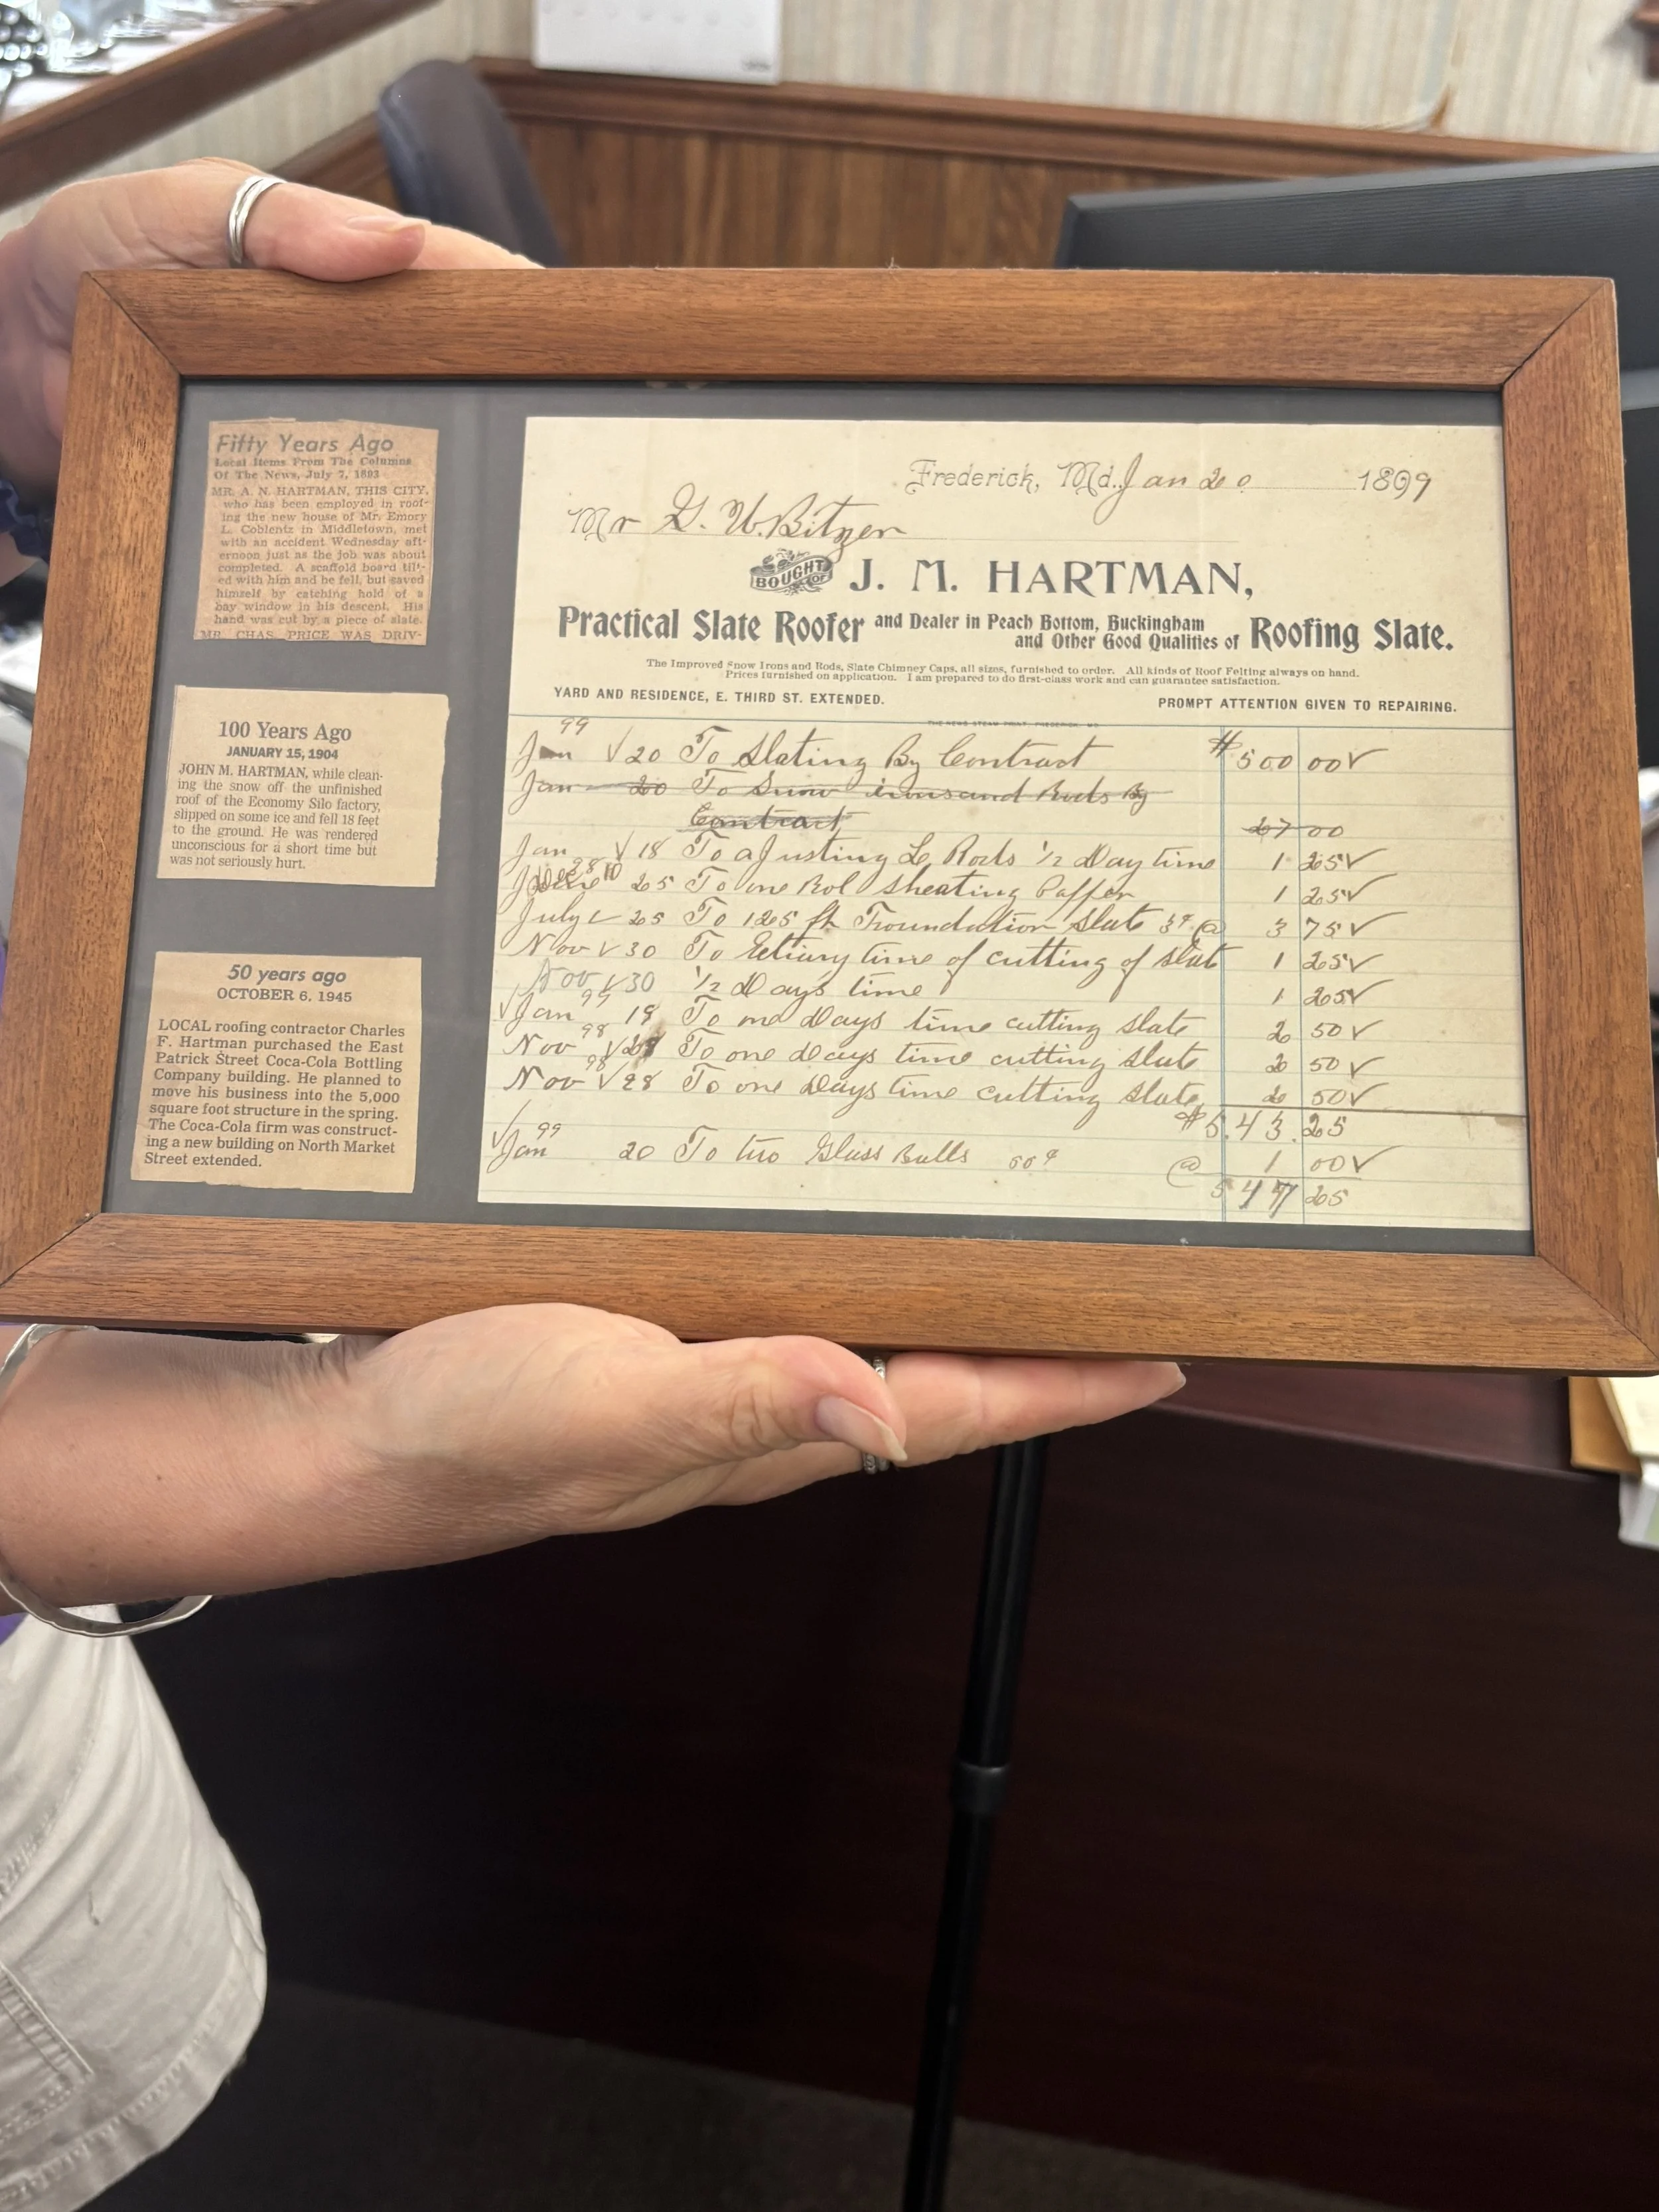 Fifty Years Ago
Local Items From The Columns
Of The News, July 7, 1893
MR. A. N. HARTMAN, THIS CITY,
who has been employed in roof-
ing the new house of Mr. Emory
L. Coblentz in Middletown, met
with an accident Wednesday aft-
ernoon just as the job was about
completed. A scaffold board tilt-
ed with him and he fell, but saved
himself by catching hold of a
bay window in his descent. His
hand was cut by a piece of slate.
MR. CHAS. PRICE WAS DRIV-
100 Years Ago
JANUARY 15, 1904
JOHN M. HARTMAN, while clean-
ing the snow off the unfinished
roof of the Economy Silo factory,
slipped on some ice and fell 18 feet
to the ground. He was rendered
unconscious for a short time but
was not seriously hurt.
50 years ago
OCTOBER 6, 1945
LOCAL roofing contractor Charles
F. Hartman purchased the East
Patrick Street Coca-Cola Bottling
Company building. He planned to
move his business into the 5,000
square foot structure in the spring.
The Coca-Cola firm was construct-
ing a new building on North Market
Street extended.
Frederick, Md. Jan 20 1899
Mr G. W. Bitzer
BOUGHT OF J. M. HARTMAN,
Practical Slate Roofer and Dealer in Peach Bottom, Buckingham and Other Good Qualities of Roofing Slate.
The Improved Snow Irons and Rods, Slate Chimney Caps, all sizes, furnished to order. All kinds of Roof Felting always on hand.
Prices furnished on application. I am prepared to do first-class work and can guarantee satisfaction.
YARD AND RESIDENCE, E. THIRD ST. EXTENDED. PROMPT ATTENTION GIVEN TO REPAIRING.
THE NEWS STEAM PRINT, FREDERICK, MD.
99
Jan √ 20 To Slating By Contract $500 00 √
Jan 20 To Snow irons and Rods By
Contract 27 00
Jan √ 18 To aJusting L Rods 1/2 Day time 1 25 √
25 To one Rol Sheating Paffer 1 25 √
July 25 To 125 ft Froundation Slate 3¢ @ 3 75 √
Nov √ 30 To time of cutting of Slat 1 25 √
Nov √ 30 1/2 Day's time 1 25 √
√ Jan 99 19 To one Days time cutting Slate 2 50 √
Nov 98 √ To one Days time cutting Slate 2 50 √
Nov 98 √ 28 To one Days time cutting Slate 2 50 √
$543.25
√ Jan 99 20 To two Glass Balls 50¢ @ 1 00 √
547 25